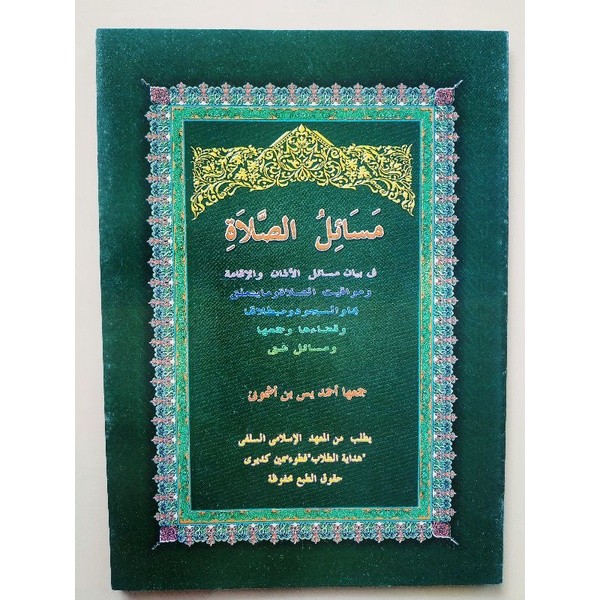 مَسَائِلُ الصَّلَاةِ
فى بيان مسائل الأذان والإقامة
ومواقيت الصلاة ومايتعلق
بها والسجود ومبطلاتها
وقضاءها وجمعها
ومسائل شتى
جمعها أحمد يس بن أسمونى
يطلب من المعهد الإسلامى السلفى
"هداية الطلاب" فطوء سمين كديرى
حقوق الطبع محفوظة